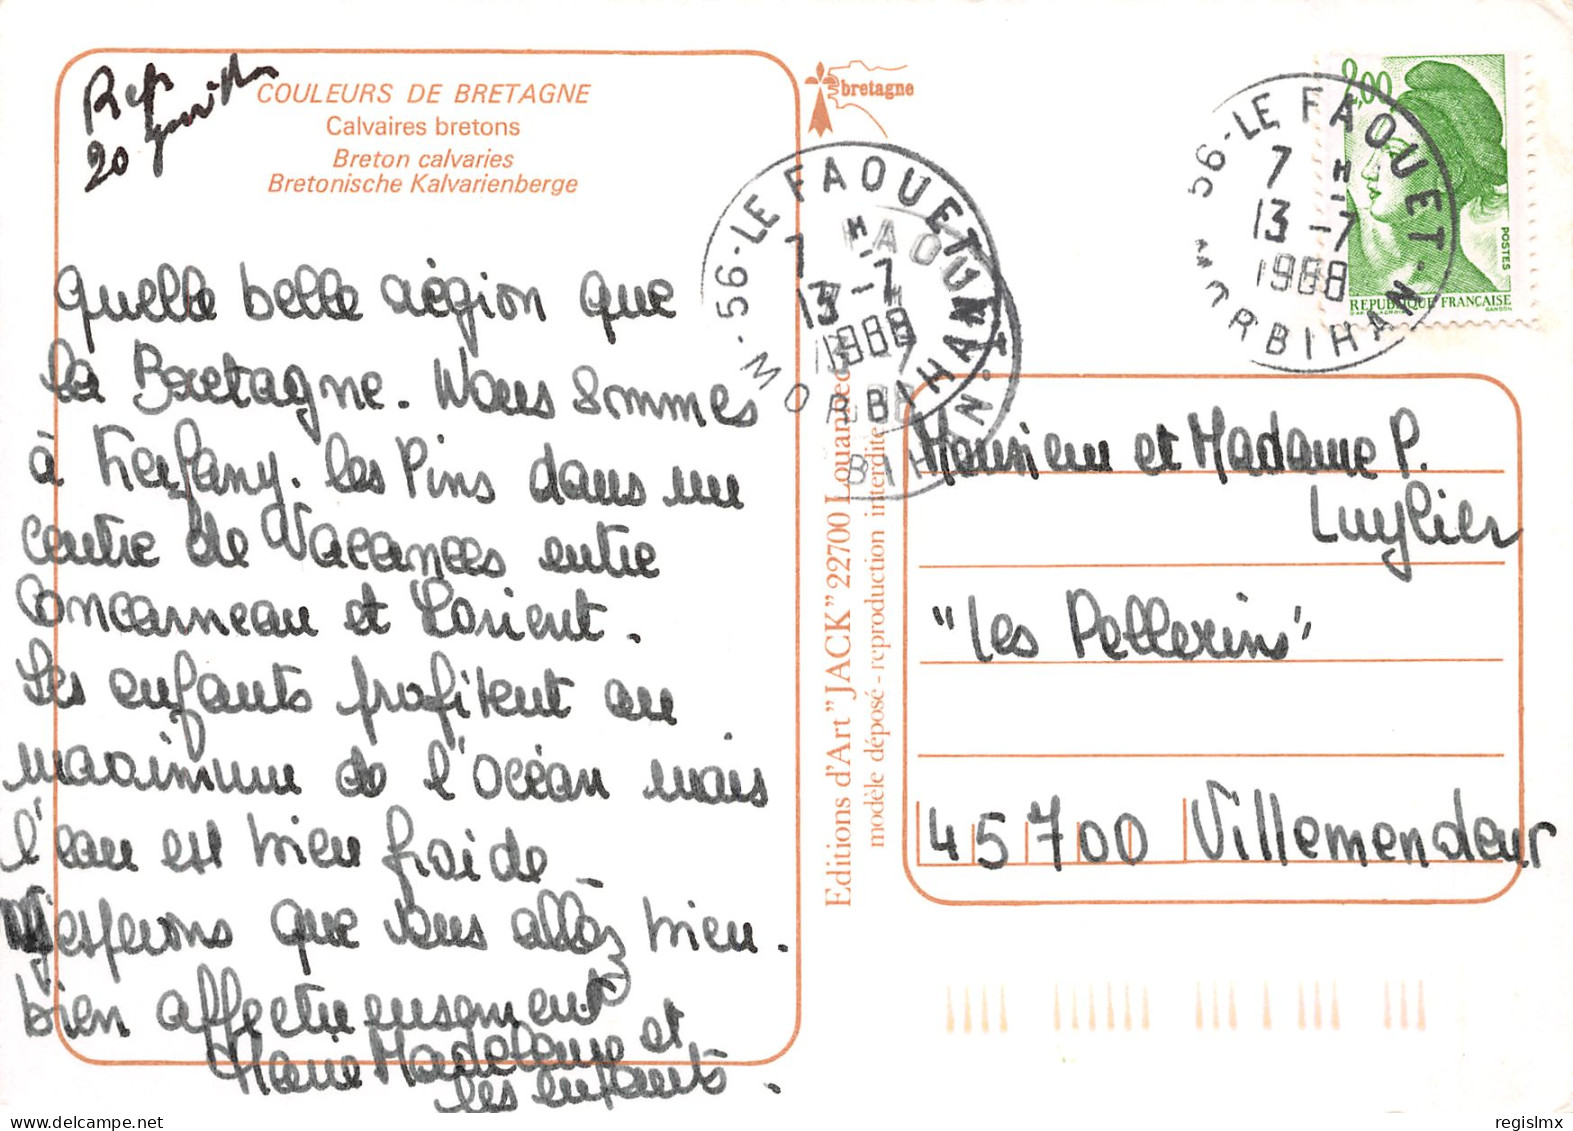 Rep
20 juillet
COULEURS DE BRETAGNE
Calvaires bretons
Breton calvaries
Bretonische Kalvarienberge
Quelle belle région que
la Bretagne. Nous sommes
à Kerfany. les Pins dans un
centre de Vacances entre
Concarneau et Lorient.
Les enfants profitent au
maximum de l'océan mais
l'eau est bien froide.
J'espérons que vous allez bien.
bien affectueusement
Marie Madeleine et
les enfants.
bretagne
Editions d'Art "JACK" 22700 Louannec
modèle déposé - reproduction interdite
56-LE FAOUET
7 H
13-7
1988
MORBIHAN
56-LE FAOUET
7 H
13-7
1988
MORBIHAN
2,00
POSTES
REPUBLIQUE FRANÇAISE
GANDON
Monsieur et Madame P.
Luylier
"Les Pellerins"
45700 Villemandeur
regislmx